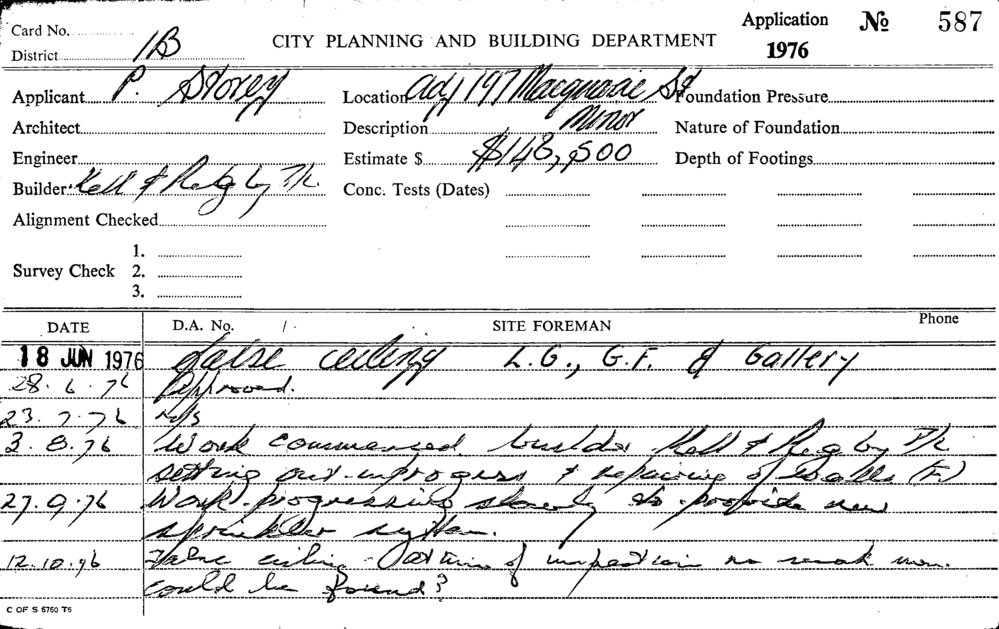 Card No.
District 1B
CITY PLANNING AND BUILDING DEPARTMENT
Application No 587
1976
Applicant P. Storey
Location Adj 197 Macquarie St
Foundation Pressure
Architect
Description Minor
Nature of Foundation
Engineer
Estimate $ $148,500
Depth of Footings
Builder: Kell & Rigby P/L.
Conc. Tests (Dates)
Alignment Checked
Survey Check
1.
2.
3.
DATE D.A. No. SITE FOREMAN Phone
18 JUN 1976 False ceiling L.G., G.F. & Gallery
28.6.76 Approved.
23.7.76 N/S
3.8.76 Work commenced builder Kell & Rigby P/L
setting out in progress & repairing of walls
27.9.76 Work progressing slowly to provide new
sprinkler system.
12.10.76 False ceiling - at time of inspection no work men
could be found?
C OF S 6760 T6